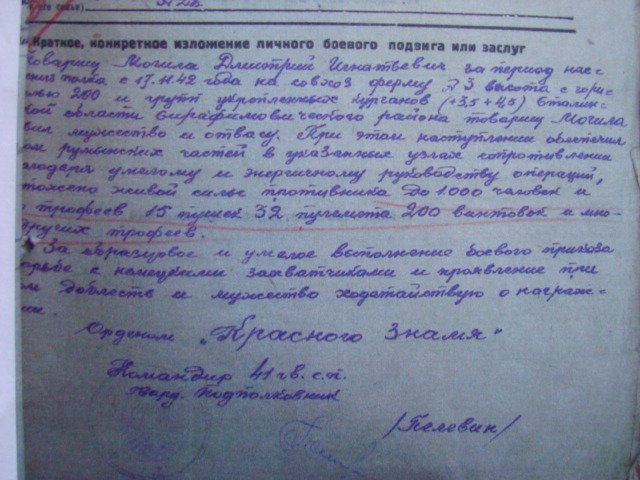 Краткое, конкретное изложение личного боевого подвига или заслуг
товарищ Могила Дмитрий Игнатьевич за период нас-
полка с 17.11.42 года на совхоз ферму №3 высота с гори-
лью 200 и групп укрепленных курганов (+3,5+4,5) Сталин-
кой области Серафимовического района товарищ Могила
вил мужество и отвагу. При этом наступлении обеспечил
ом румынских частей в указанных узлах сопротивлении
агодаря умелому и энергичному руководству операций,
тожено живой силы противника до 1.000 человек и
трофеев 15 пушек 32 пулемета 200 винтовок и мно-
других трофеев.
За образцовое и умелое выполнение боевого приказа
орьбе с немецкими захватчиками и проявление при
ом доблесть и мужество ходатайствую о награж-
ии.
Орденом „Красного Знамя"
Командир 41 гв. с.п.
гвард. подполковник
/Пелевин/